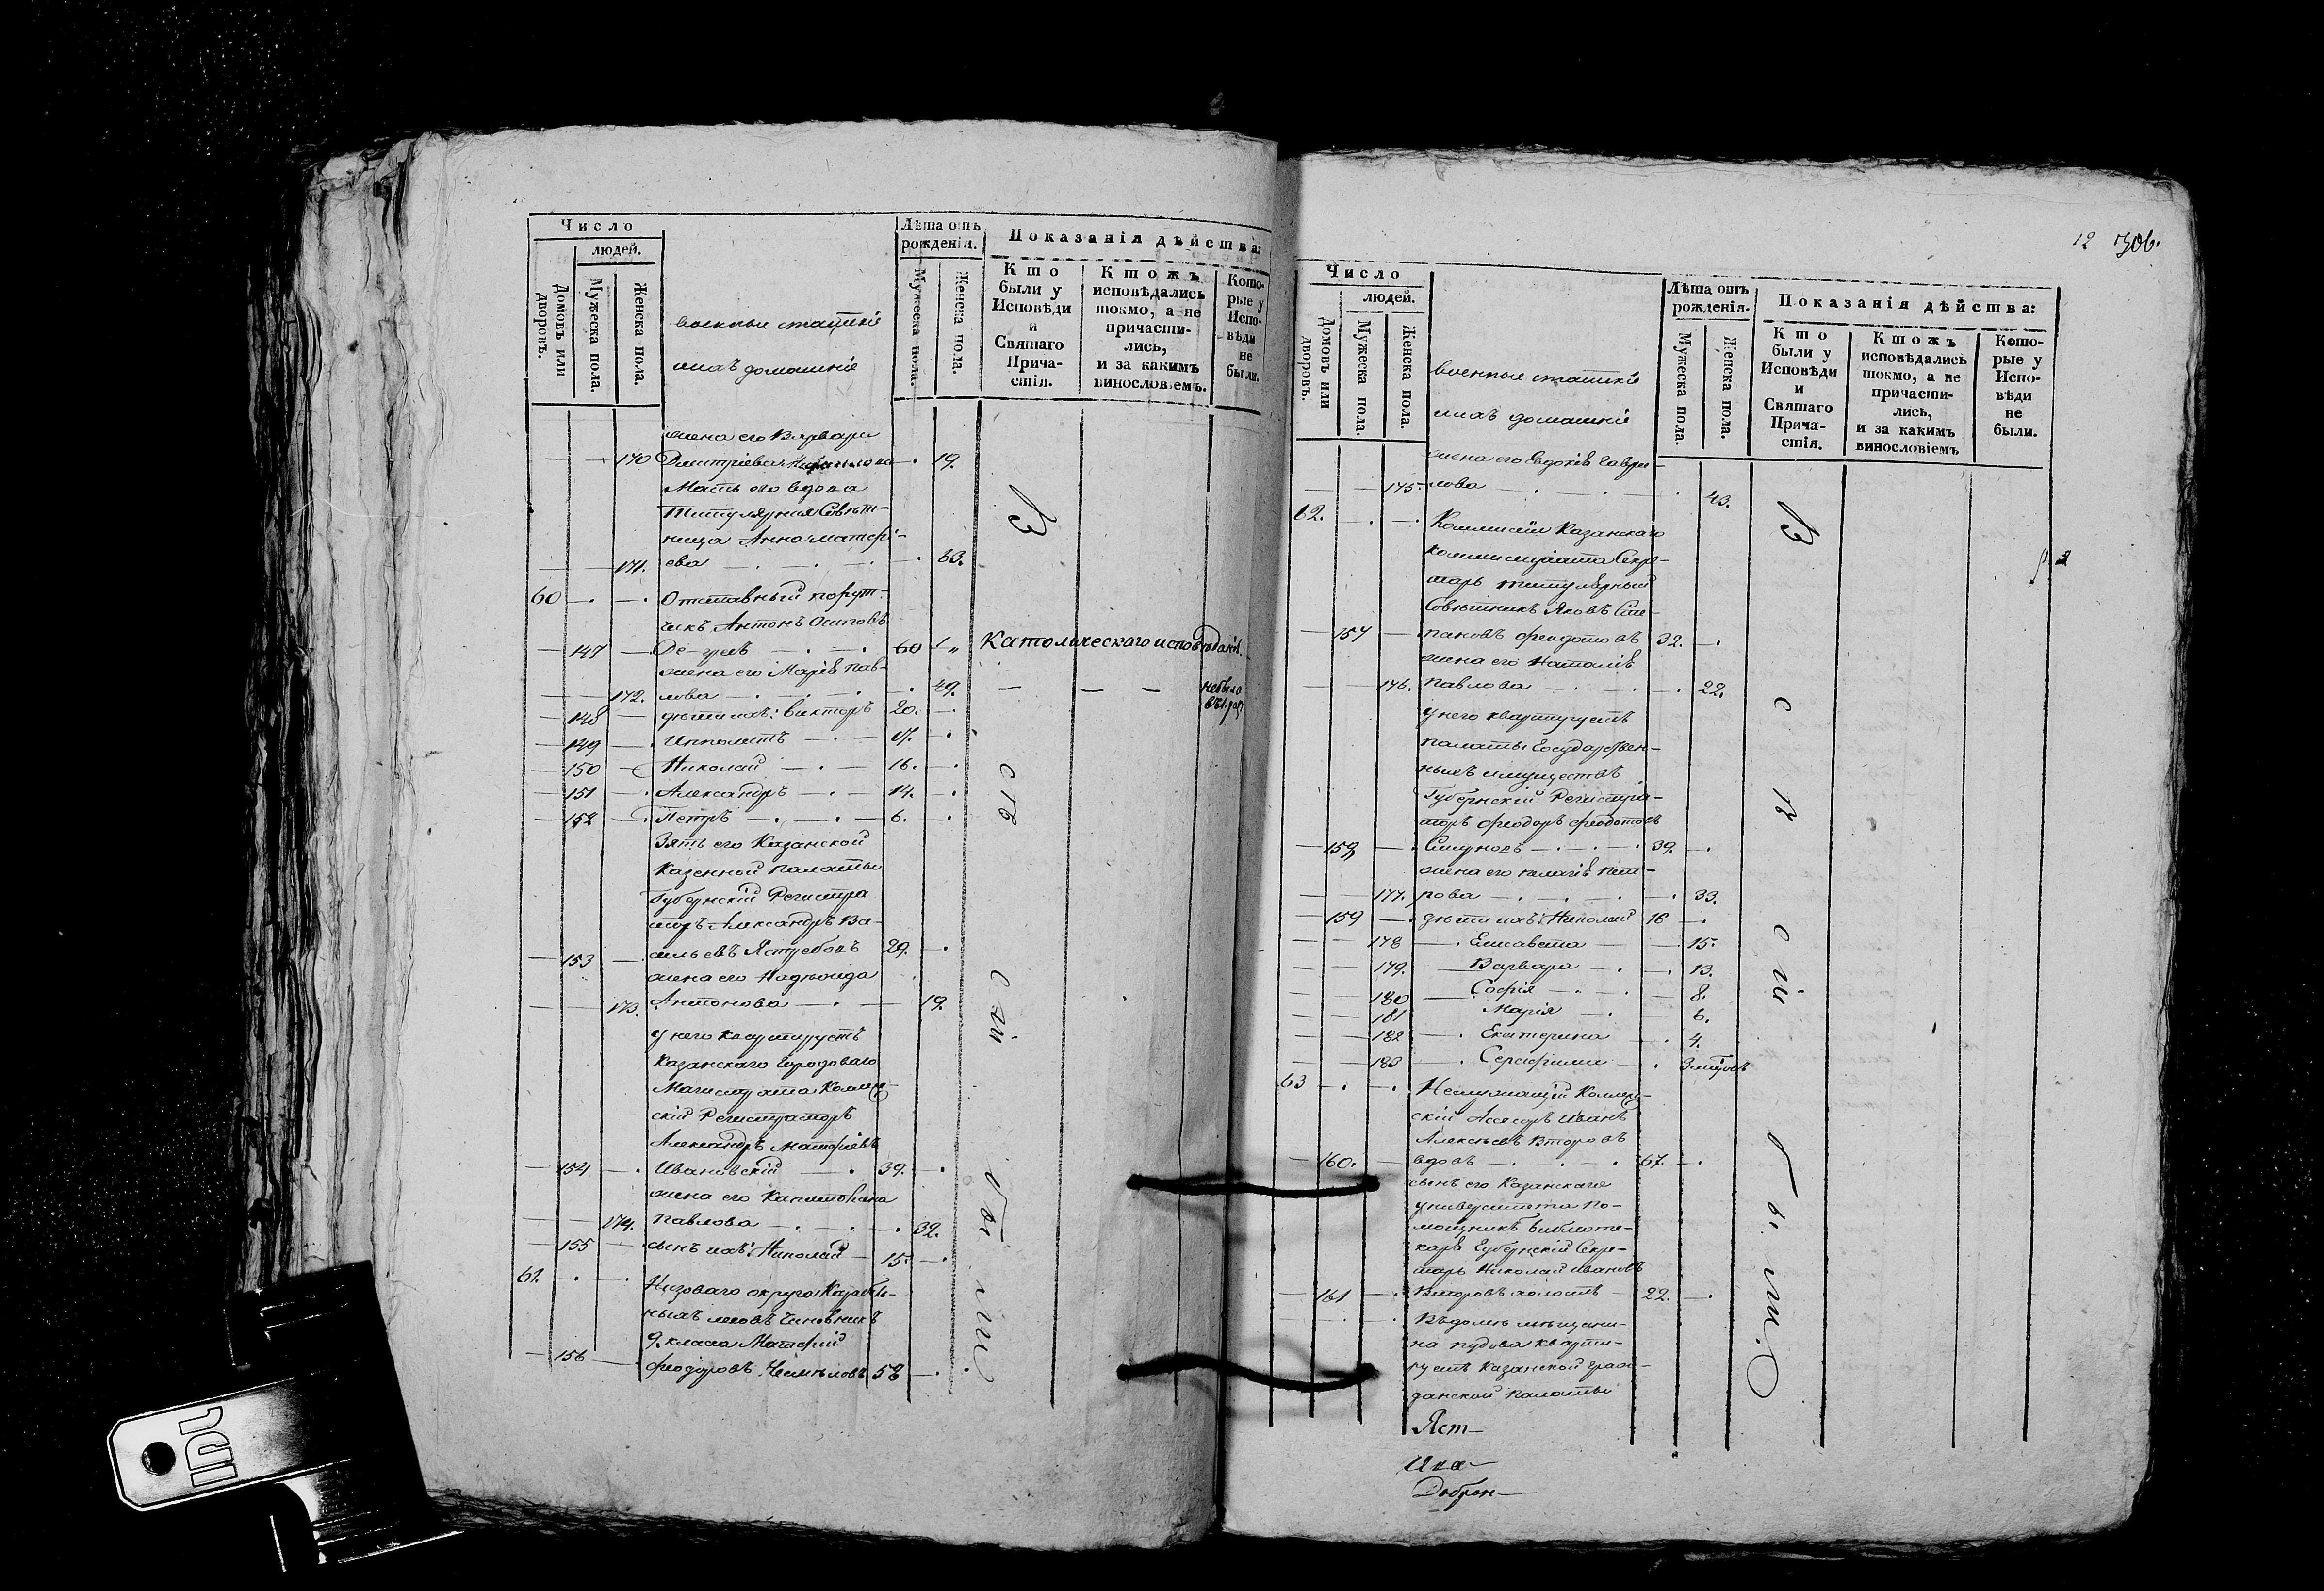 Число
людей.
Домовъ или дворовъ.
Мужеска пола.
Женска пола.
военные статскіе
ихъ домашніе
Лѣта отъ
рожденія.
Мужеска пола.
Женска пола.
Показанія дѣйства:
Кто
были у
Исповѣди
и
Святаго
Прича-
стія.
Ктожъ
исповѣдались
токмо, а не
причасти-
лись,
и за какимъ
винословіемъ.
Кото-
рые у
Испо-
вѣди
не
были.
жена его Варвара
170 Дмитріева 19.
Мать его вдова
Титулярная Совѣт-
ница Анна Матфѣ-
171. ева 63.
60 Отставный порут-
чикъ Антонъ Осиповъ
147 60 Католическаго исповѣданія.
жена его Марія Пав-
172. лова 49. небыла
148 дѣти ихъ: Викторъ 20.
149 Ипполитъ 17.
150 Николай 16.
151 Александръ 14.
152 Петръ 6.
Зять его Казанской
Казенной Палаты
Губернскій Регистра
торъ Александръ Ва-
153 сильевъ Ястребовъ 29.
жена его Надежда
173. Антонова 19.
у него квартируетъ
Казанскаго Городоваго
Магистрата Коллеж-
скій Регистраторъ
Александръ Матфіевъ
154 Ивановскій 39.
жена его Капитолина
174. Павлова 32.
155 сынъ ихъ: Николай 15.
61. Низоваго округа Корабель-
ныхъ лѣсовъ Чиновникъ
9. класса Матфій
156 Феодоровъ 58
12 306.
Число
людей.
Домовъ или дворовъ.
Мужеска пола.
Женска пола.
военные статскіе
ихъ домашніе
Лѣта отъ
рожденія.
Мужеска пола.
Женска пола.
Показанія дѣйства:
Кто
были у
Исповѣди
и
Святаго
Прича-
стія.
Ктожъ
исповѣдались
токмо, а не
причасти-
лись,
и за какимъ
винословіемъ
Кото-
рые у
Испо-
вѣди
не
были.
жена его Евдокія Гаври-
175. лова 43.
62. Коммисіи Казанскаго
Коммисаріата Секре-
тарь Титулярный
Совѣтникъ Яковъ Сте-
157 пановъ Феодотовъ 32.
жена его Наталія
176. Павлова 22.
у него квартируетъ
палаты Государствен-
ныхъ имуществъ
Губернскій Регистра-
торъ Феодоръ Феодотовъ
158 Смирновъ 39.
жена его Пелагія Пет-
177. рова 33.
159 дѣти ихъ: Николай 16
178 Елисавета 15.
179. Варвара 13.
180 Софія 8.
181 Марія 6.
182 Екатерина 4.
183 Серафима
63 Неслужащій Коллеж-
скій Асесоръ Иванъ
Алексѣевъ Второвъ
160. вдовъ 67.
сынъ его Казанскаго
университета По-
мощникъ библіоте-
каря Губернскій Секре-
тарь Николай Ивановъ
161 Второвъ холостъ 22.
Въ домѣ мѣщани-
на Пудова кварти-
руетъ Казанской Граж-
данской Палаты
Яст-
Ива-
Доброн-
IDL